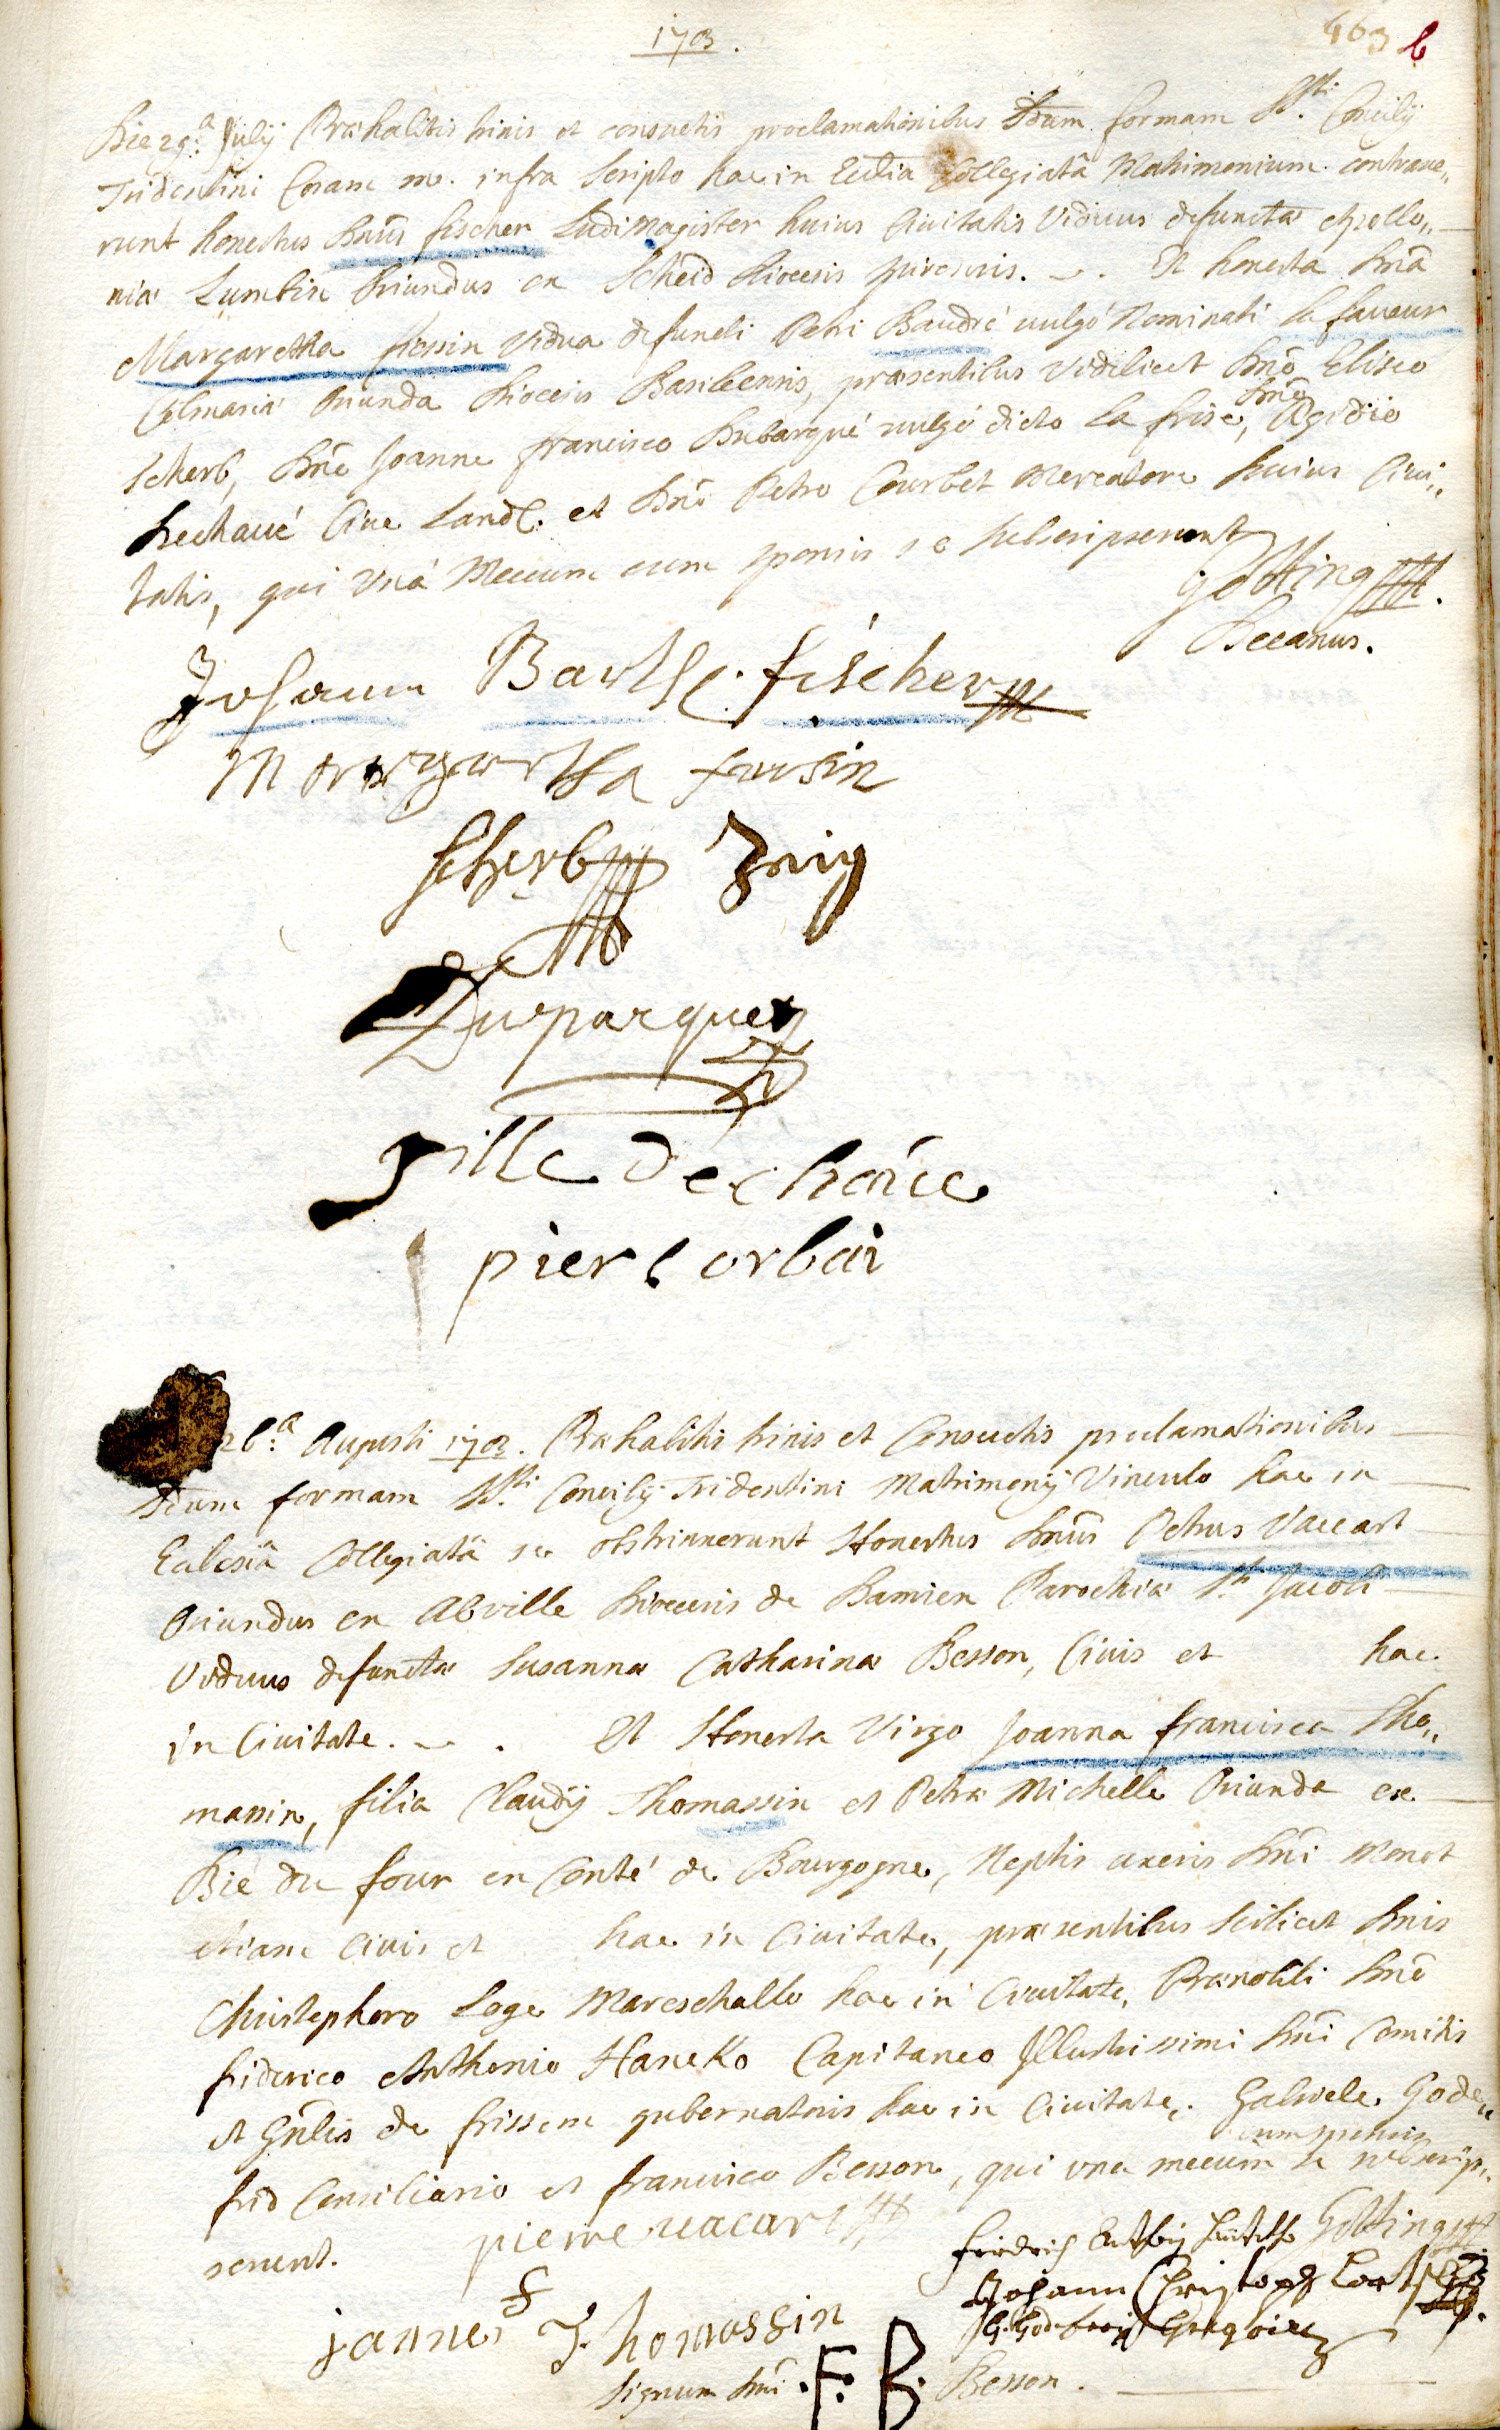 1703.
463 b
Die 29.a Julij Praehabitis trinis et consuetis proclamationibus Scdum formam SSti. Concilij
Tridentini Coram me infra scripto hac in Ecclia Collegiatâ Matrimonium contraxe„
runt honestus Dnus fischer Ludimagister huius Civitatis Viduus defunctae Apollo„
nia Lumbin Oriundus ex Scheid Dioecesis Spirensis. Et honesta Dna
Margaretha Vidua defuncti Petri Baudré vulgó Nominati la faveur
Colmariâ Oriunda Dioecesis Basileensis, praesentibus Videlicet Dno Eliseo
Scherb, Dno Joanne francisco Dubarqué vulgó dicto la frise, Dno Ægidio
Dechaué Cive Land. et Dno Petro Courbet Mercatore huius Civi„
tatis, qui Unâ Mecum cum sponsis se subscripserunt
Gotting
Decanus.
Johann Barthl. fischer
Margartha
Scherb Zeig
Duparquet
gille dechaúe
pier corbai
Augusti 1703. Praehabitis trinis et Consuetis proclamationibus
Scdum formam SSti. Concilij Tridentini Matrimonij Vinculo hac in
Eclesiâ Collegiatâ se obstrinxerunt Honestus Dnus Petrus Vaccart
Oriundus ex Abville Dioecesis de Damien Parochiae St. Jacobi
Viduus defunctae Susanna Catharina Besson, Civis et hac
in Civitate. Et Honesta Virgo Joanna francisca Tho„
massin, filia Claudij Thomassin et Petra Michelle Oriunda ex
Bié du four en Conté de Bourgogne, Neptis uxoris Dni Monot
etiam Civis et hac in Civitate, praesentibus scilicet Dnis
Christophoro Loge Mareschallo hac in Civitate, Praenobili Dno
friderico Anthonio Haneko Capitaneo Illustrissimi Dni Comitis
et Gnlis de frissem gubernatoris hac in Civitate, Gabriele Gode„
frid Consiliario et francisco Besson, qui una mecum cum sponsis se subscrip„
serunt. pierre uacart
Gotting
Johann Christoph
janne f Thomassin
Signum Dni .F. B. Besson.